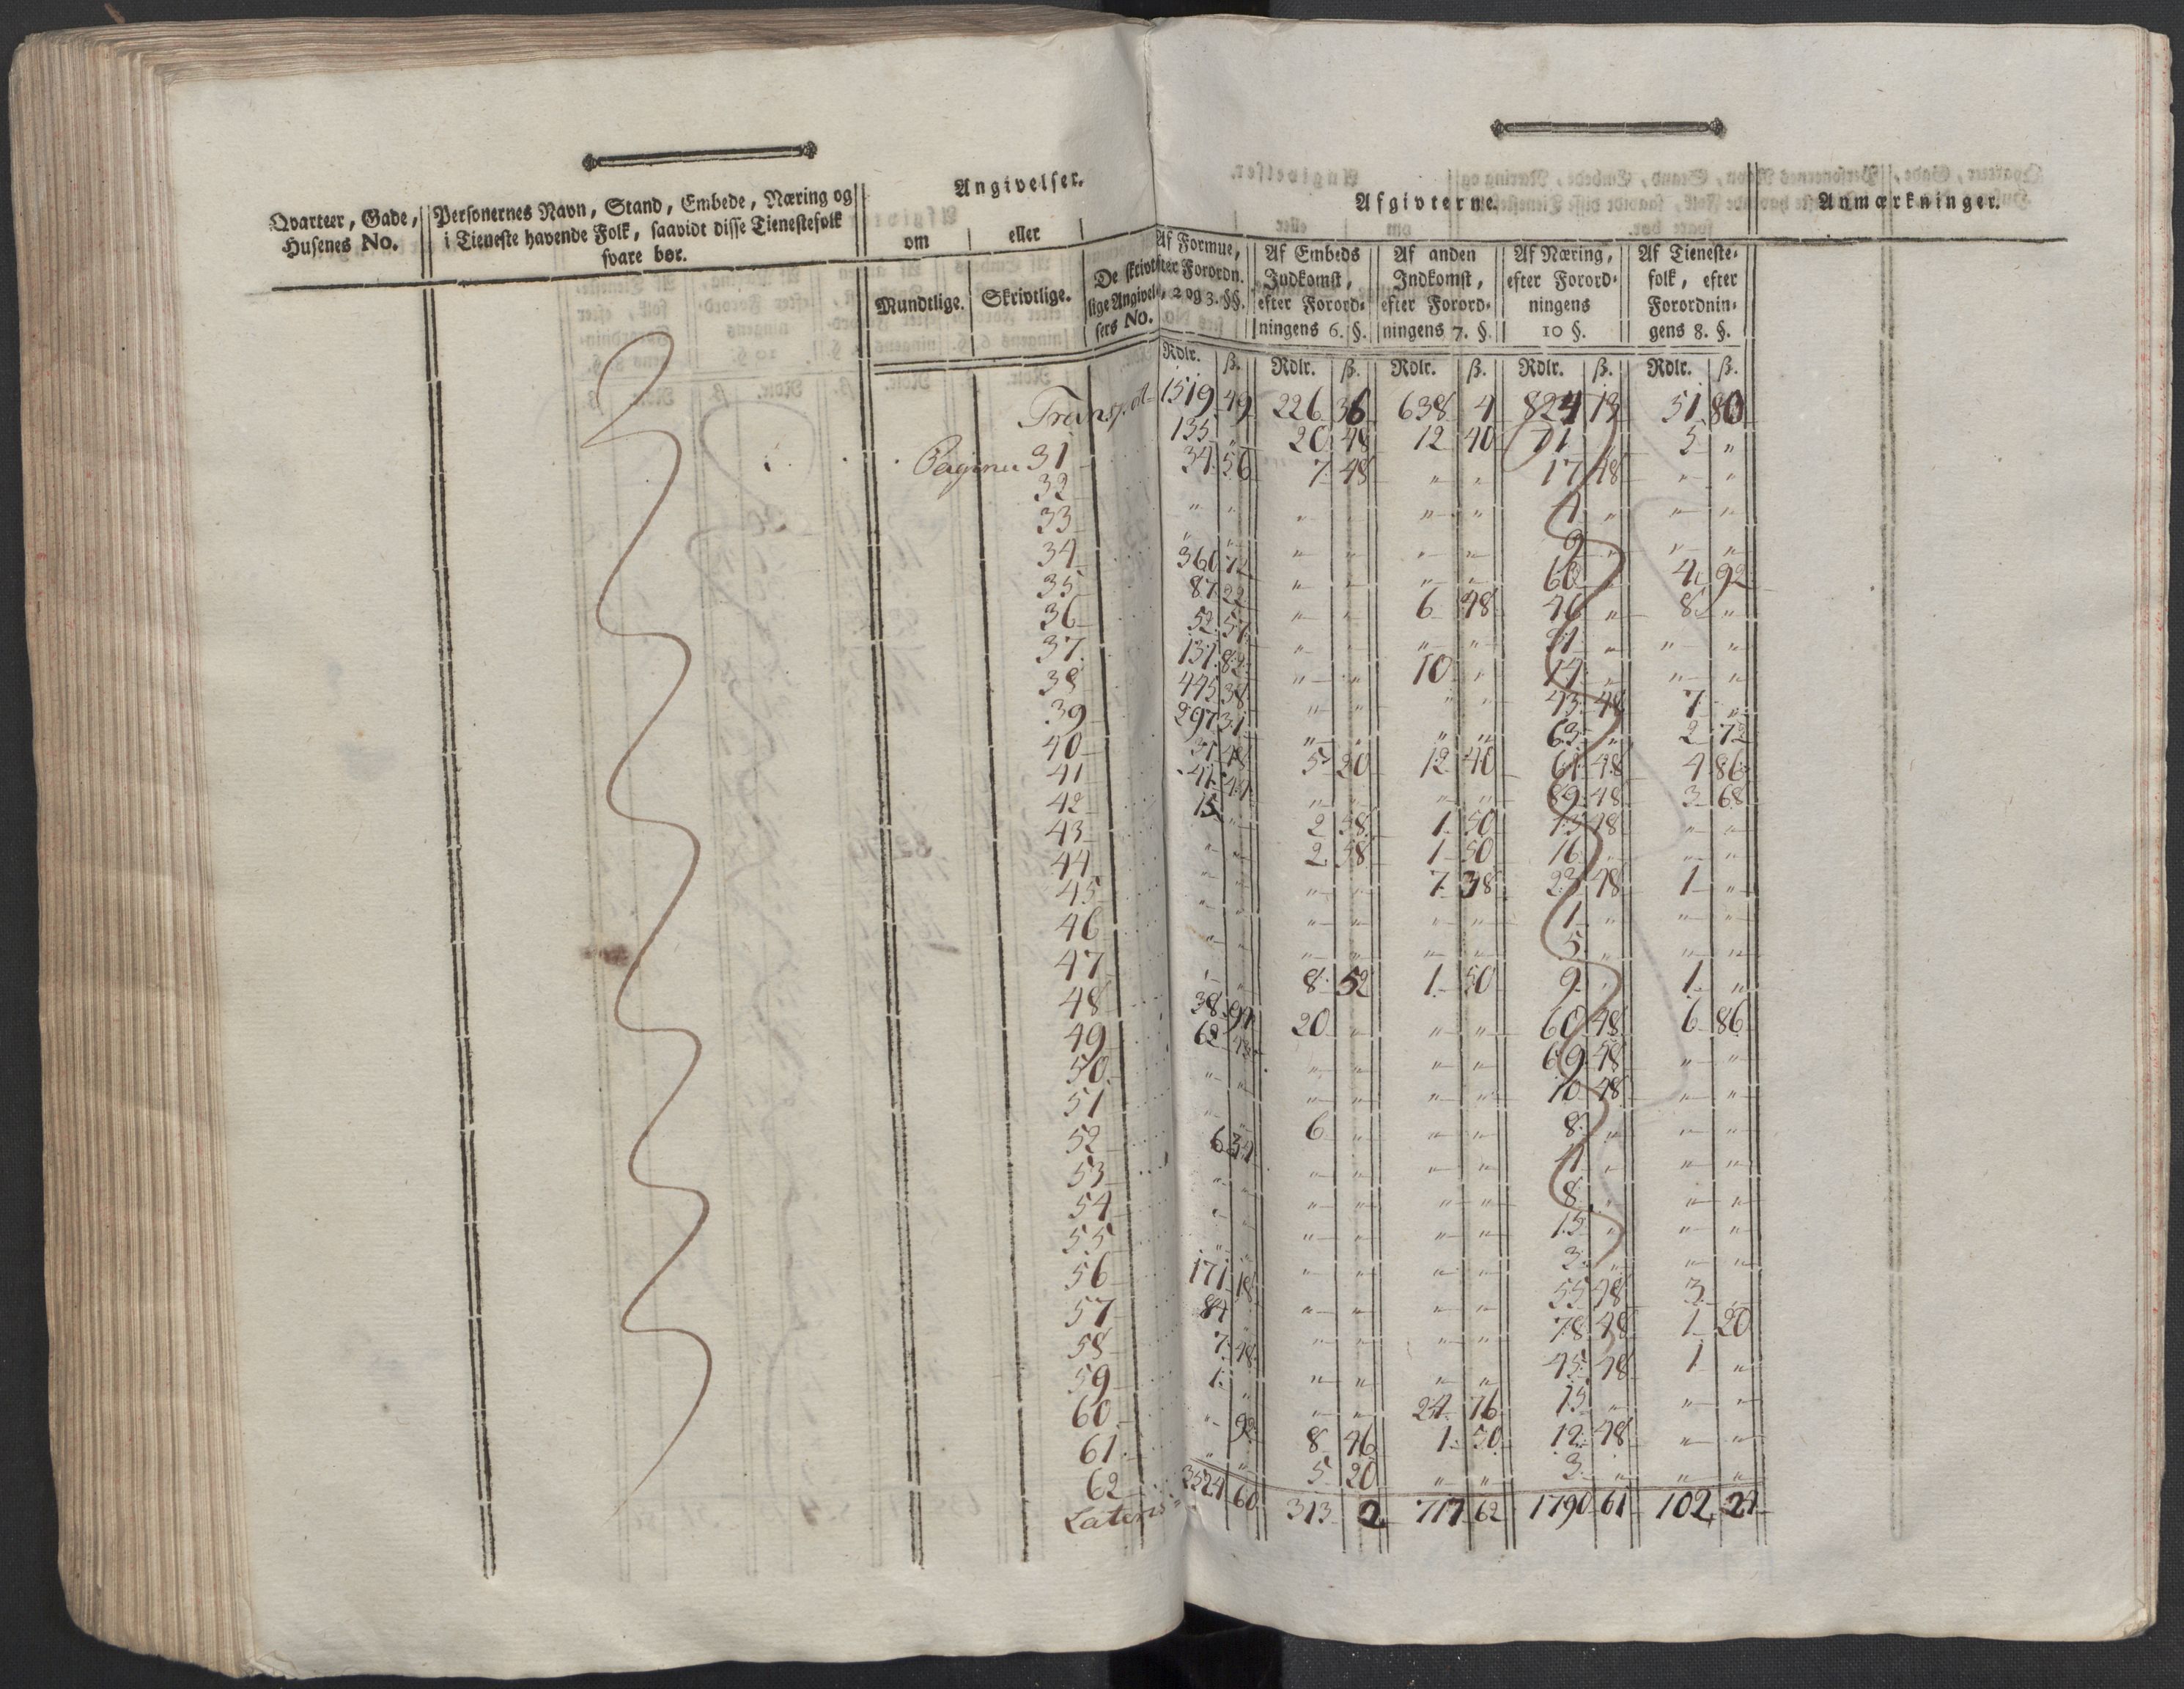 Qvarteer, Gade, Husenes No.
Personernes Navn, Stand, Embede, Næring og
i Tieneste havende Folk, saavidt disse Tienestefolk
svare bør.
Angivelser.
om | eller
Mundtlige. Skrivtlige.
De skrivt-
lige Angivel-
sers No.
Afgivterne.
Anmærkninger.
Af Formue,
efter Forordn.
2 og 3. §§.
Af Embeds
Indkomst,
efter Forord-
ningens 6. §.
Af anden
Indkomst,
efter Forord-
ningens 7. §.
Af Næring,
efter Forord-
ningens
10 §.
Af Tieneste-
folk, efter
Forordnin-
gens 8. §.
Rdlr. ß. Rdlr. ß. Rdlr. ß. Rdlr. ß. Rdlr. ß.
Transp. 1519 49 226 36 638 4 824 13 51 80
Pagina 31 135 " 20 48 12 40 71 5 "
32 34 56 7 48 " " 17 48 " "
33 " " " " " " 4 " " "
34 " " " " " " 9 " " "
35 360 72 " " " " 60 4 92
36 87 22 " " 6 48 46 " 8 "
37 52 57 " " " " 31 " " "
38 137 82 " " 10 " 14 " " "
39 445 38 " " " " 43 48 7 "
40 297 31 " " " " 63 " 2 72
41 37 48 5 20 12 40 61 48 4 86
42 41 41 " " " " 89 48 3 68
43 15 " 2 58 1 50 13 48 " "
44 " " 2 58 1 50 16 " " "
45 " " " " 7 38 23 48 1 "
46 " " " " " " 1 " " "
47 " " " " " " 5 " " "
48 " " 8 52 1 50 9 " 1 "
49 38 94 20 " " " 60 48 6 86
50 62 48 " " " " 69 48 " "
51 " " " " " " 10 48 " "
52 " " 6 " " " 8 " " "
53 6 34 " " " " 4 " " "
54 " " " " " " 8 " " "
55 " " " " " " 15 " " "
56 " " " " " " 2 " " "
57 171 18 " " " " 55 48 3 "
58 84 " " " " " 78 48 1 20
59 7 48 " " " " 45 48 1 "
60 1 " " " 24 76 15 " " "
61 " 92 8 46 1 50 12 48 " "
62 " " 5 20 " " 3 " " "
Lateris 3524 60 313 2 717 62 1790 61 102 24